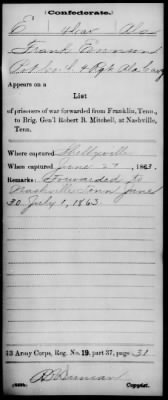 Confederate.
E | 4 Cav | Ala
Frank Emerson
Pvt Co. , 4 Regt Ala Cav
Appears on a
List
of prisoners of war forwarded from Franklin, Tenn.,
to Brig. Gen'l Robert B. Mitchell, at Nashville,
Tenn.
Where captured Shelbyville
When captured June 27, 1863.
Remarks: Forwarded to
Nashville Tenn June
30 July 1, 1863.
13 Army Corps, Reg. No. 19, part 37, page 31
Copyist.